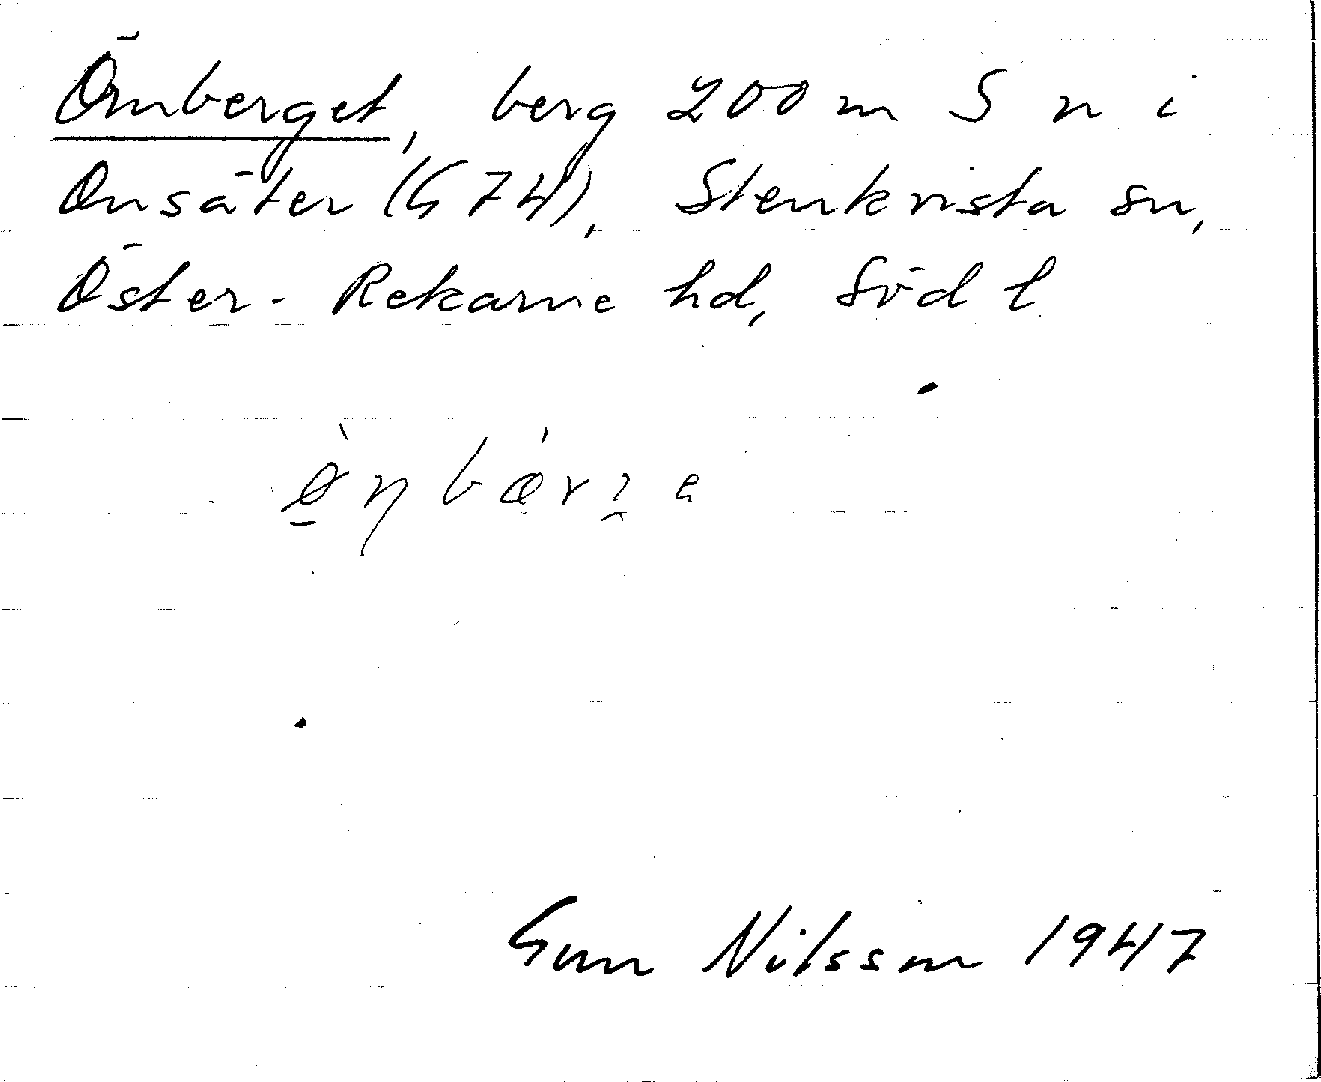 Ömberget, berg 200 m S n i
Onsäter (G 74), Stenkvista sn,
Öster-Rekarne hd, Söd l
Gun Nilsson 1947